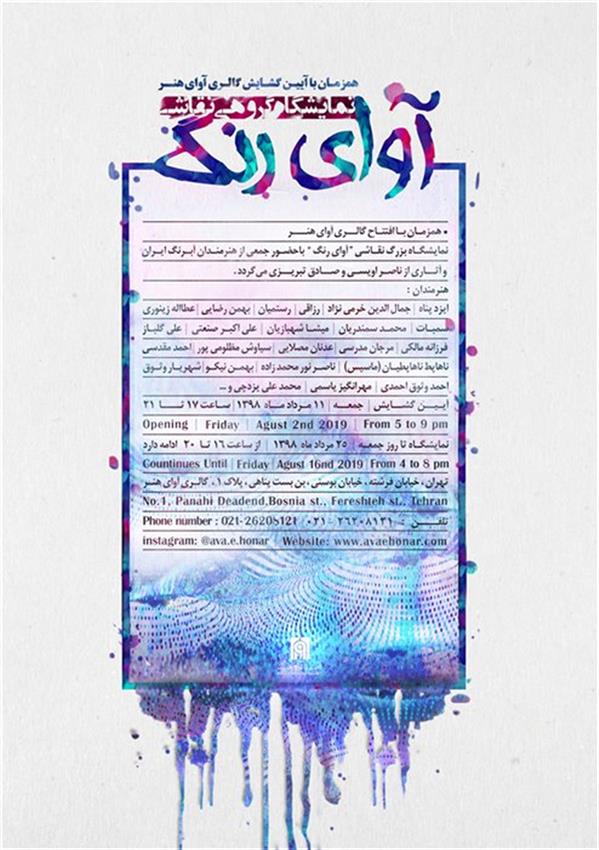 همزمان با آیین گشایش گالری آوای هنر
نمایشگاه گروهی نقاشی
آوای رنگ
• همزمان با افتتاح گالری آوای هنر
نمایشگاه بزرگ نقاشی " آوای رنگ " باحضور جمعی از هنرمندان آبرنگ ایران
و آثاری از ناصر اویسی و صادق تبریزی می گردد .
هنرمندان :
ایزد پناه | جمال الدین خرمی نژاد | رزاقی | رستمیان | بهمن رضایی | عطااله زینوری
سمیات | محمد سمندریان | میشا شهبازیان | علی اکبر صنعتی | علی گلباز
فرزانه مالکی | مرجان مدرسی | عدنان مصلایی | سیاوش مظلومی پور | احمد مقدسی
ناهایط ناهایطیان (ماسیس) | ناصر نور محمد زاده | بهمن نیکو | شهریار وثوق
احمد وثوق احمدی | مهرانگیز یاسمی | محمد علی یزدچی و ...
آیین گشایش | جمعه | ۱۱ مرداد ماه ۱۳۹۸ | ساعت ۱۷ تا ۲۱
Opening | Friday | Agust 2nd 2019 | From 5 to 9 pm
نمایشگاه تا روز جمعه | ۲۵ مرداد ماه ۱۳۹۸ | از ساعت ۱۶ تا ۲۰ ادامه دارد
Countinues Until | Friday | Agust 16nd 2019 | From 4 to 8 pm
تهران ، خیابان فرشته ، خیابان بوسنی ، بن بست پناهی ، پلاک ۱ ، گالری آوای هنر
No.1, Panahi Deadend,Bosnia st., Fereshteh st., Tehran
تلفن : ۰۲۱-۲۶۲۰۸۱۲۱ Phone number : 021-26208121
instagram: @ava.e.honar | Website: www.avaehonar.com